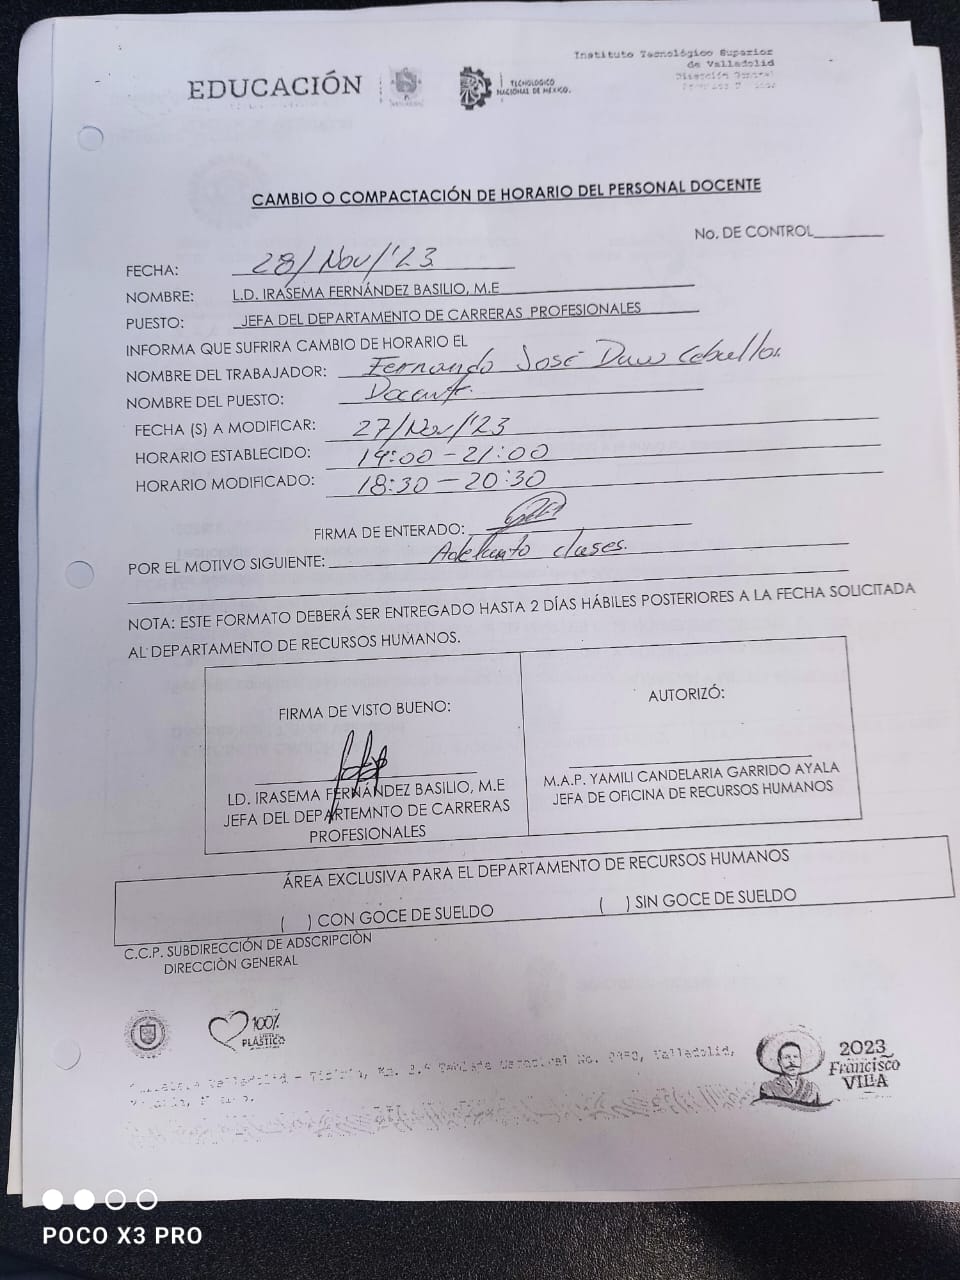 Instituto Tecnológico Superior
de Valladolid
Dirección General
EDUCACIÓN
TECNOLÓGICO
NACIONAL DE MÉXICO.
CAMBIO O COMPACTACIÓN DE HORARIO DEL PERSONAL DOCENTE
No. DE CONTROL
FECHA: 28/Nov/'23
NOMBRE: L.D. IRASEMA FERNÁNDEZ BASILIO, M.E
PUESTO: JEFA DEL DEPARTAMENTO DE CARRERAS PROFESIONALES
INFORMA QUE SUFRIRA CAMBIO DE HORARIO EL
NOMBRE DEL TRABAJADOR: Fernando José
NOMBRE DEL PUESTO: Docente.
FECHA (S) A MODIFICAR: 27/Nov/'23
HORARIO ESTABLECIDO: 19:00 - 21:00
HORARIO MODIFICADO: 18:30 - 20:30
FIRMA DE ENTERADO:
POR EL MOTIVO SIGUIENTE: Adelanto clases.
NOTA: ESTE FORMATO DEBERÁ SER ENTREGADO HASTA 2 DÍAS HÁBILES POSTERIORES A LA FECHA SOLICITADA
AL DEPARTAMENTO DE RECURSOS HUMANOS.
FIRMA DE VISTO BUENO:
LD. IRASEMA FERNÁNDEZ BASILIO, M.E
JEFA DEL DEPARTEMNTO DE CARRERAS
PROFESIONALES
AUTORIZÓ:
M.A.P. YAMILI CANDELARIA GARRIDO AYALA
JEFA DE OFICINA DE RECURSOS HUMANOS
ÁREA EXCLUSIVA PARA EL DEPARTAMENTO DE RECURSOS HUMANOS
( ) CON GOCE DE SUELDO ( ) SIN GOCE DE SUELDO
C.C.P. SUBDIRECCIÓN DE ADSCRIPCIÒN
DIRECCIÒN GENERAL
100%
PLÁSTICO
Valladolid - Tizimín, Km. No. Valladolid,
2023
Francisco
VILLA
POCO X3 PRO